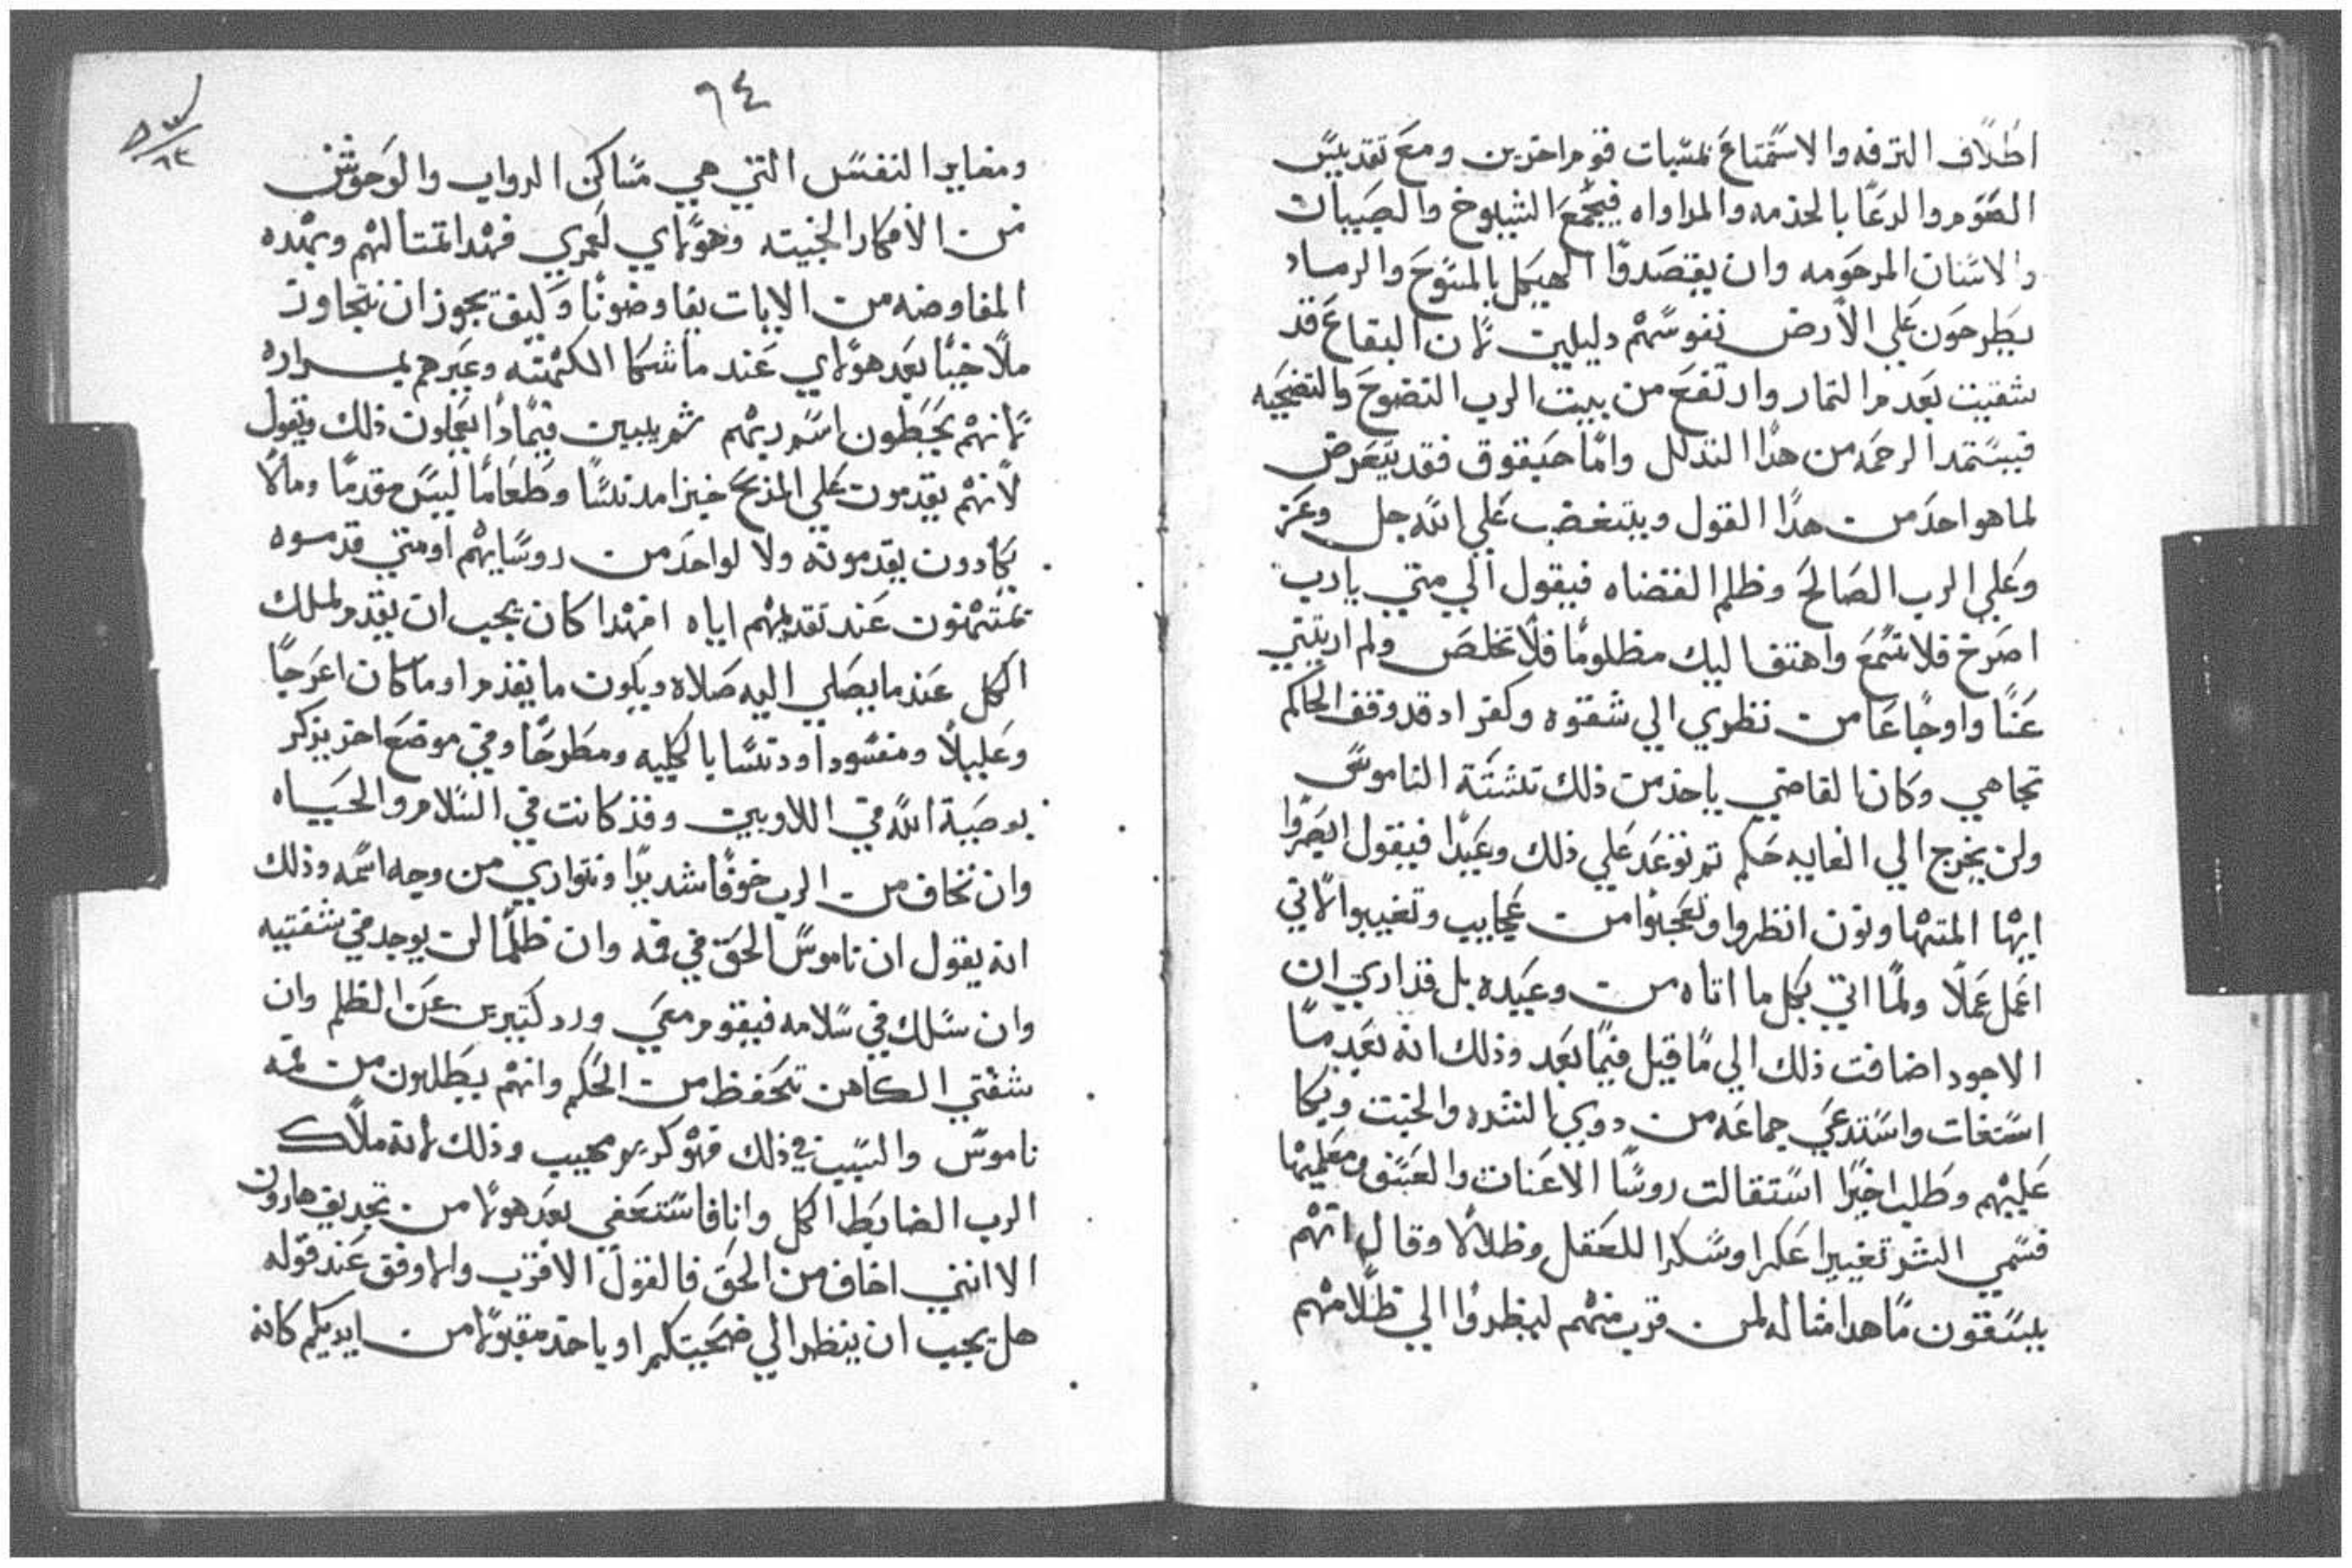 اطلاف الترفه والاستمتاع نمتبات قوم اخرين ومع تقديس
الصوم والدعا بالحذمه والمداواه فيجمع الشيوخ والصبيان
والاسنان المرحومه وان يقتصدوا الهيكل بالمسوح والرماد
يطرحون علي الارض نفوسهم دليلين لان البقاع قد
شقيت بعدم التمار وارتفع من بيت الرب النضوح والتضحيه
فيستمد الرحمه من هدا التدلل واما حبقوق فقد يتعرض
لما هو احد من هدا القول ويتغضب علي الله جل وعز
وعلي الرب الصالح وظلم القضاه فيقول الي متي يارب
اصرخ فلا تسمع واهتف اليك مظلوما فلا تخلص ولم اريتني
عنا واوجاعا من نظري الي شقوه وكفر اد قد وقف الحاكم
تجاهي وكان القاضي ياخد من ذلك تشتته الناموس
ولن يخرج الي الغايه حكم تم توعد علي ذلك وعيدا فيقول ابصروا
ايها المتهاونون انظروا وتعجبوا من عجايب وتغيبوا لاني
اعمل عملا ولما اتي بكل ما اتاه من وعيده بل قد اري ان
الاجود اضافت ذلك الي ما قيل فيما بعد وذلك انه بعد ما
استغات واستدعي جماعه من دوي الشره والخبت وبكا
عليهم وطلب اخيرا استقالت روسا الاعنات والعسف ومعلميها
فسمي الشر تغييرا عكرا وسكرا للعقل وظلالا وقال انهم
يسقون ما هدا مثاله لمن قرب منهم لينظروا الي ظلامهم
٦٤
ومغاير النفس التي هي مساكن الدواب والوحوش
من الافكار الخبيته وهولاي لعمري فهدا تمتالهم وبهده
المفاوضه من الايات يفاوضونا وكيف يجوز ان نتجاوز
ملاخيا بعد هولاي عند ما شكا الكهنه وعيرهم بمراره
لانهم يحبطون اسم ربهم ثم يبين فيمادا يعملون ذلك ويقول
لانهم يقدمون علي المذبح خبزا مدنسا وطعاما ليس مقدما ومالا
يكادون يقدمونه ولا لواحد من روسايهم او متي قدموه
تمتهنون عند تقديمهم اياه افهدا كان يجب ان يقدم لملك
الكل عند ما يصلي اليه صلاه ويكون ما يقدم او ما كان اعرجا
وعليلا ومفسودا ودنسا بالكليه ومطرحا وفي موضع اخر يذكر
بوصية الله في اللاويين وقد كانت في السلام والحياه
وان نخاف من الرب خوفا شديدا ونتواري من وجه اسمه وذلك
انه يقول ان ناموس الحق في فمه وان ظلما لن يوجد في شفتيه
وان سلك في سلامه فيقوم معي ورد كتيرين عن الظلم وان
شفتي الكاهن تحفظ من الحكم وانهم يطلبون من فمه
ناموس والسبب في ذلك فهو كريم مهيب وذلك لانه ملاك
الرب الضابط الكل وانا فاستعفي بعد هولا من تجديف هارون
الا انني اخاف من الحق فالقول الاقرب والاوفق عند قوله
هل يجب ان ينظر الي ضحيتكم او ياخد مقبولا من ايديكم كانه